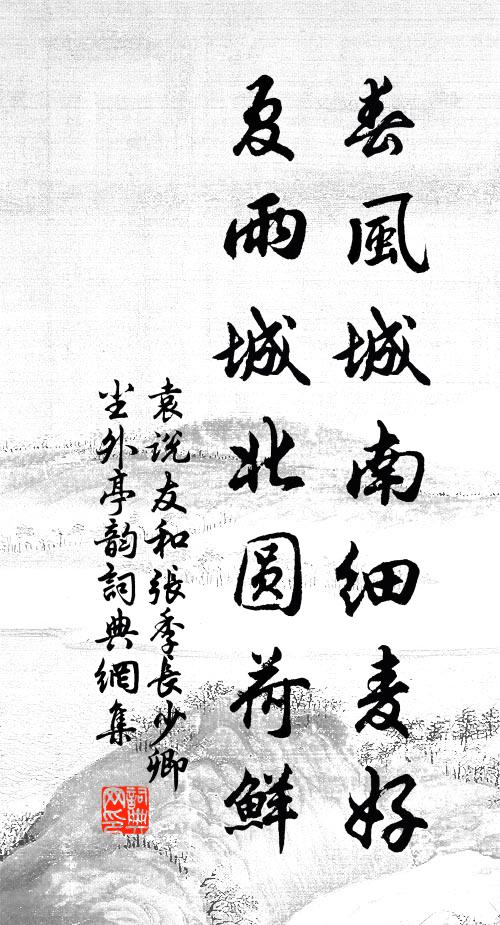 春風城南细麦好
夏雨城北圆荷鮮
袁说友和張季長少卿
尘外亭韵詞典網集